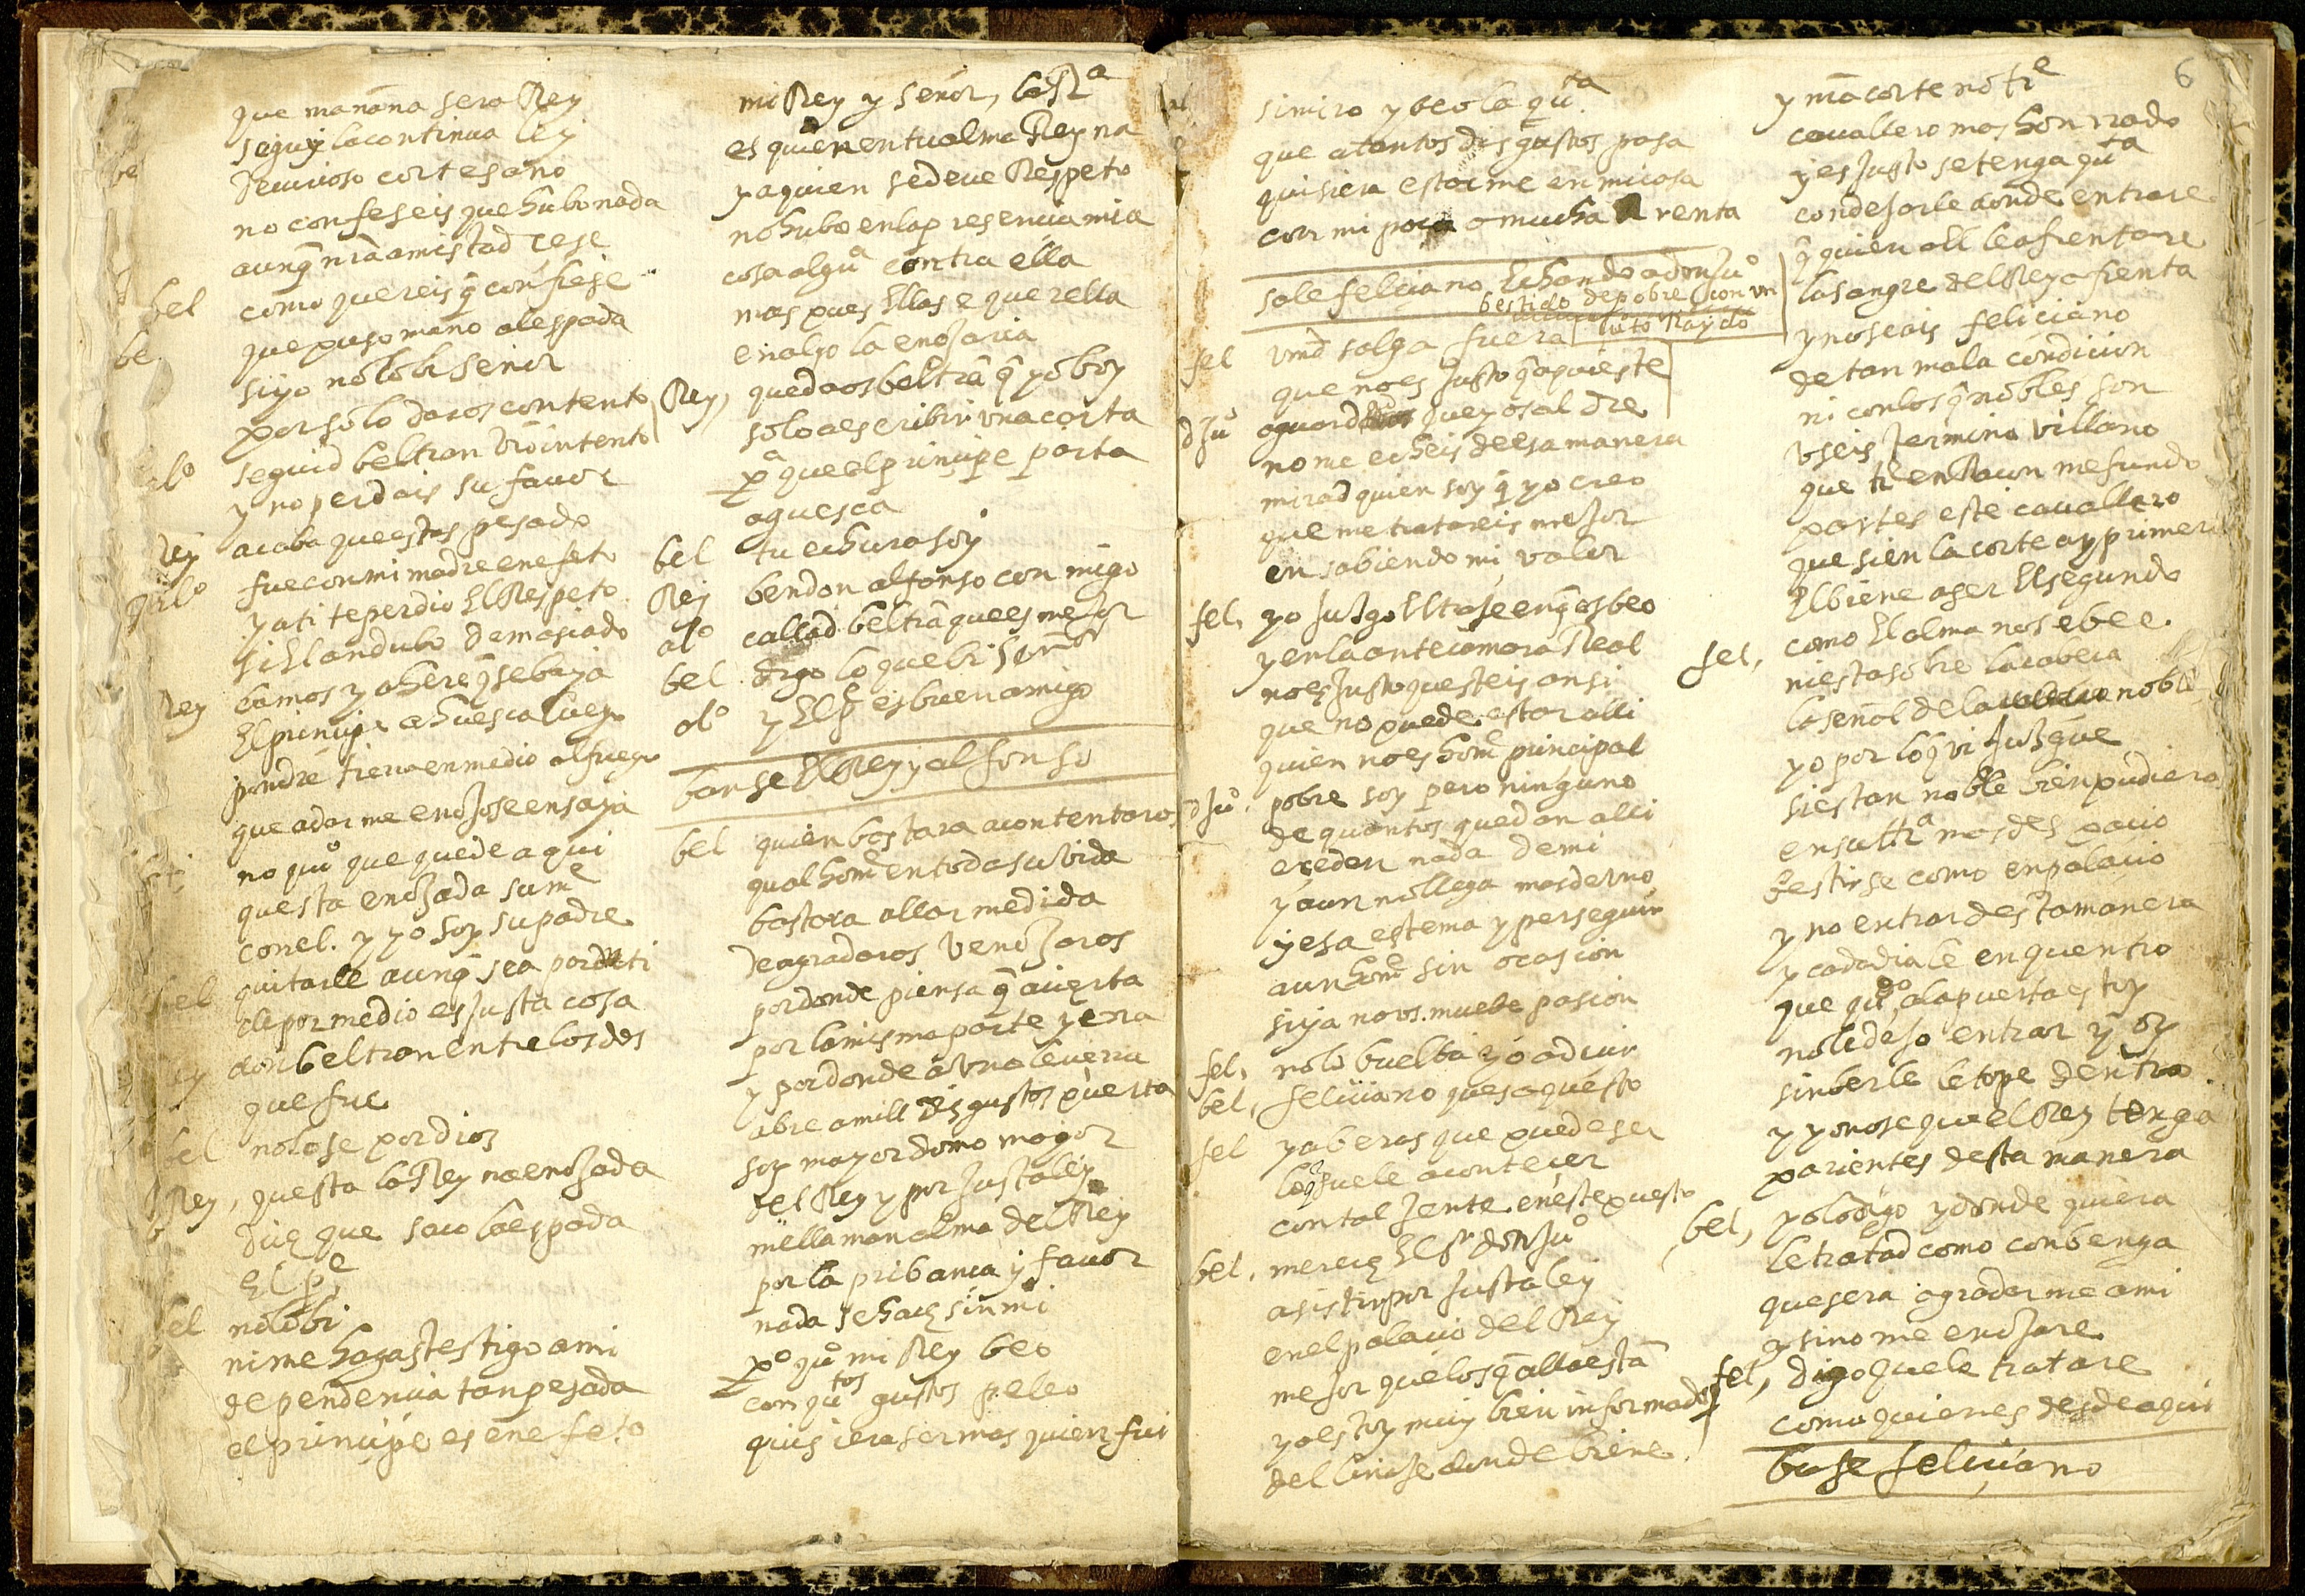 que mañana sera Rey
seguy la continua ley
de vicioso cortesano
no confeseis que hubo nada
aunq̃ nr̃a amistad cese
bel como quereis q̃ confiese
que puso mano al espada
si yo no lo bi señor
por solo daros contento
alº seguid beltran vr̃o intento
y no perdais su fauor
Rey acaba que estas pesado
alº fue con mi madre en efeto
y a ti te perdio El Respeto
si El andubo demasiado
Rey bamos y a here q̃ se baya
El principe a huesca luego
pondre tierra en medio al fuego
que a dar me enojos ensaya
no quiº que quede aqui
questa enojada su me
con el. y yo soy su padre
bel quitarle aunq̃ sea por ti
de por medio es justa cosa
Rey don beltran entre los dos
que fue
bel no lo se por dios
Rey, questa la Reyna enojada
diçe que saco la espada
El pe
bel no lo bi
ni me hagas testigo a mi
de pendencia tan pesada
el principe es en efeto
mi Rey y señor, la Rª
es quien en tu alma Reyna
y a quien se deue Respeto
no hubo en la presencia mia
cosa alguª contra ella
mas pues Ella se querella
en algo la enojaria
Rey, quedaos beltrã q̃ yo boy
solo a escribir vna carta
pª que el principe parta
a guesca
bel tu echura soy
Rey ben don alfonso con migo
alº callad beltrã que es mejor
bel digo lo que bi señor
alº y El pe es buen amigo
banse El Rey y alfonso
bel quien bastara a contentaros
qual home en toda su vida
bastara allar medida
de agradaros v enojaros
por donde piensa q̃ acierta
por la misma parte yerra
y por donde a vno le cierra
abre a mill disgustos puerta
soy mayordomo mayor
del Rey y por justa ley
me llaman alma del Rey
por la pribança y fauor
nada se haçe sin mi
pº quº mi Rey beo
con qutos gustos peleo
quisiera ser mas quien fui
6
si miro y beo la quta
que a tantos disgustos pasa
quisiera estarme en mi casa
con mi poca o mucha renta
sale feliciano Echando a don juº
bestido de pobre con vn
luto Raydo
fel vmd salga fuera
que no es justo q̃ aqui este
d juº aguard que yo saldre
no me echeis de esa manera
mirad quien soy q̃ yo creo
que me tratareis mejor
en sabiendo mi valor
fel, yo juzgo El traje en q̃ os beo
y en la antecamara Real
no es justo questeis ansi
que no puede estar alli
quien no es home principal
d juº. pobre soy pero ninguno
de quantos quedan alli
eçeden nada de mi
y aun no llega mas de vno
y esa es tema y perseguir
a un home sin ocasion
si ya no os muebe pasion
fel, no lo buelba yo a deçir
bel, feliciano ques aquesto
fel ya beras que puede ser
lo q̃ suele acontecer
con tal jente en este puesto
bel. mereçe El sr don juº
asistir por justa ley
en el palacio del Rey
mejor que los q̃ alla estã
yo estoy muy bien informado
del linaje donde biene
y nr̃a corte no tiee
cauallero mas honrrado
y es justo se tenga quta
con dejarle donde entrare
q̃ quien a El le afrentare
la sangre del Rey afrenta
y no seais feliciano
de tan mala condicion
ni con los q̃ nobles son
vseis termino villano
que
partes este cauallero
que si en la corte ay primero
El biene a ser El segundo
fel, como El alma no se bee.
ni esta sobre la cabeça
la señal de la nobleça
yo por lo q̃ vi juzgue
si es tan noble bien pudiera
mas despacio
bestirse como en palacio
y no entrar desta manera
y cada dia le enquentro
que qudo a la puerta estoy
no le dejo entrar y oy
sin berle le tope dentro
y yo no se que el Rey tenga
parientes desta manera
bel, yo lo digo y donde quiera
le tratad como conbenga
que sera agradarme a mi
y si no me enojare
fel, digo que le tratare
como quien es desde aqui
base feliciano